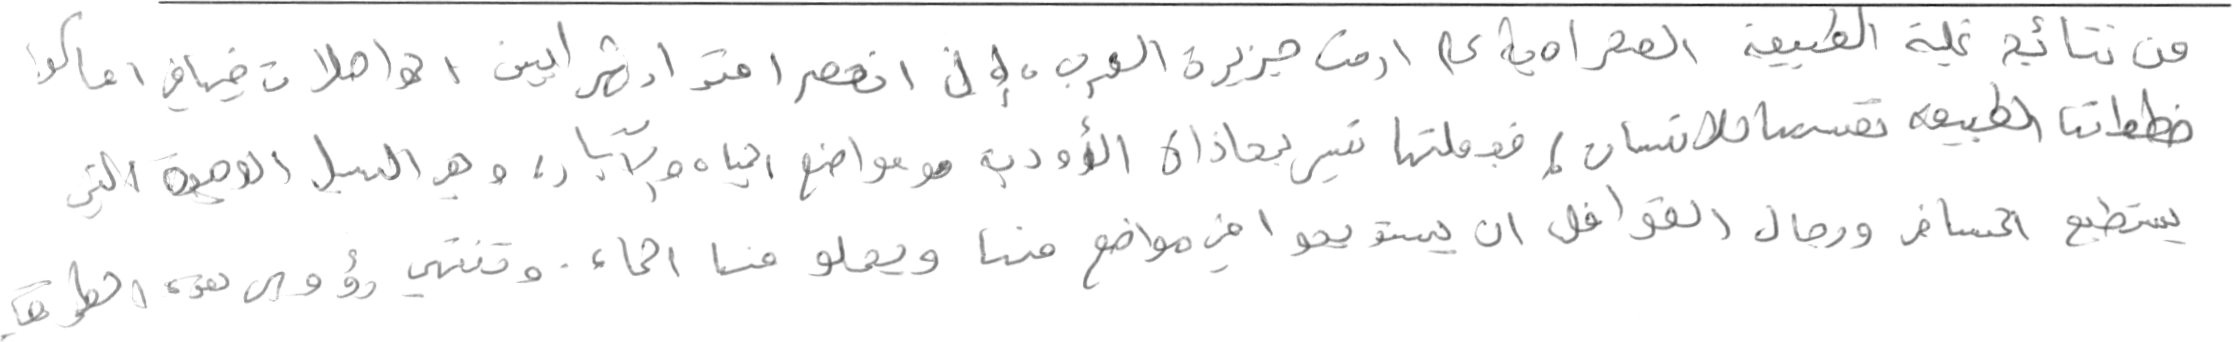 من نتائج غلبة الطبيعة الصحراوية على ارض جزيرة العرب، إن انحصر امتداد شرايين المواصلات فيها في اماكن
خططتها الطبيعة نفسها للانسان، فجعلتها تسير بمحاذاة الأودية ومواضع المياه والآبار، وهو السبيل الوحيدة التي
يستطيع المسافر ورجال القوافل ان يستريحوا في مواضع منها ويحملو منها الماء. وتنتهي رؤوس هذه الطرق